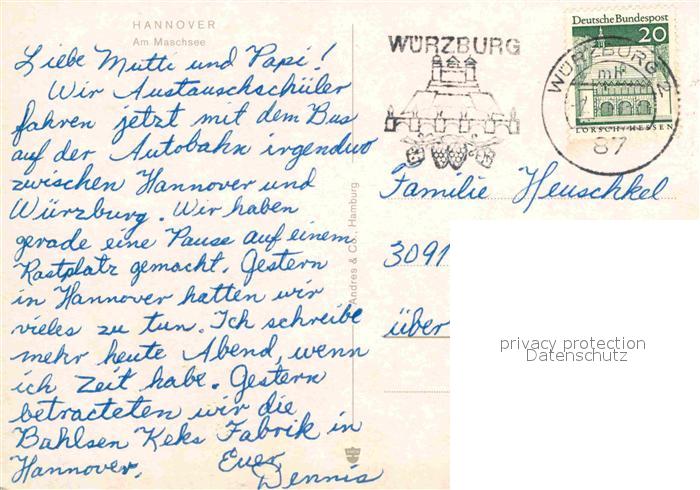 HANNOVER
Am Maschsee
Liebe Mutti und Papi!
Wir Austauschschüler
fahren jetzt mit dem Bus
auf der Autobahn irgendwo
zwischen Hannover und
Würzburg. Wir haben
gerade eine Pause auf einem
Rastplatz gemacht. Gestern
in Hannover hatten wir
vieles zu tun. Ich schreibe
mehr heute Abend, wenn
ich Zeit habe. Gestern
betracteten wir die
Bahlsen Keks Fabrik in
Hannover.
Euer
Dennis
Andres & Co., Hamburg
WÜRZBURG
Deutsche Bundespost
20
LORSCH/HESSEN
WÜRZBURG 2
mh
87
Familie Heuschkel
3091
über
privacy protection
Datenschutz